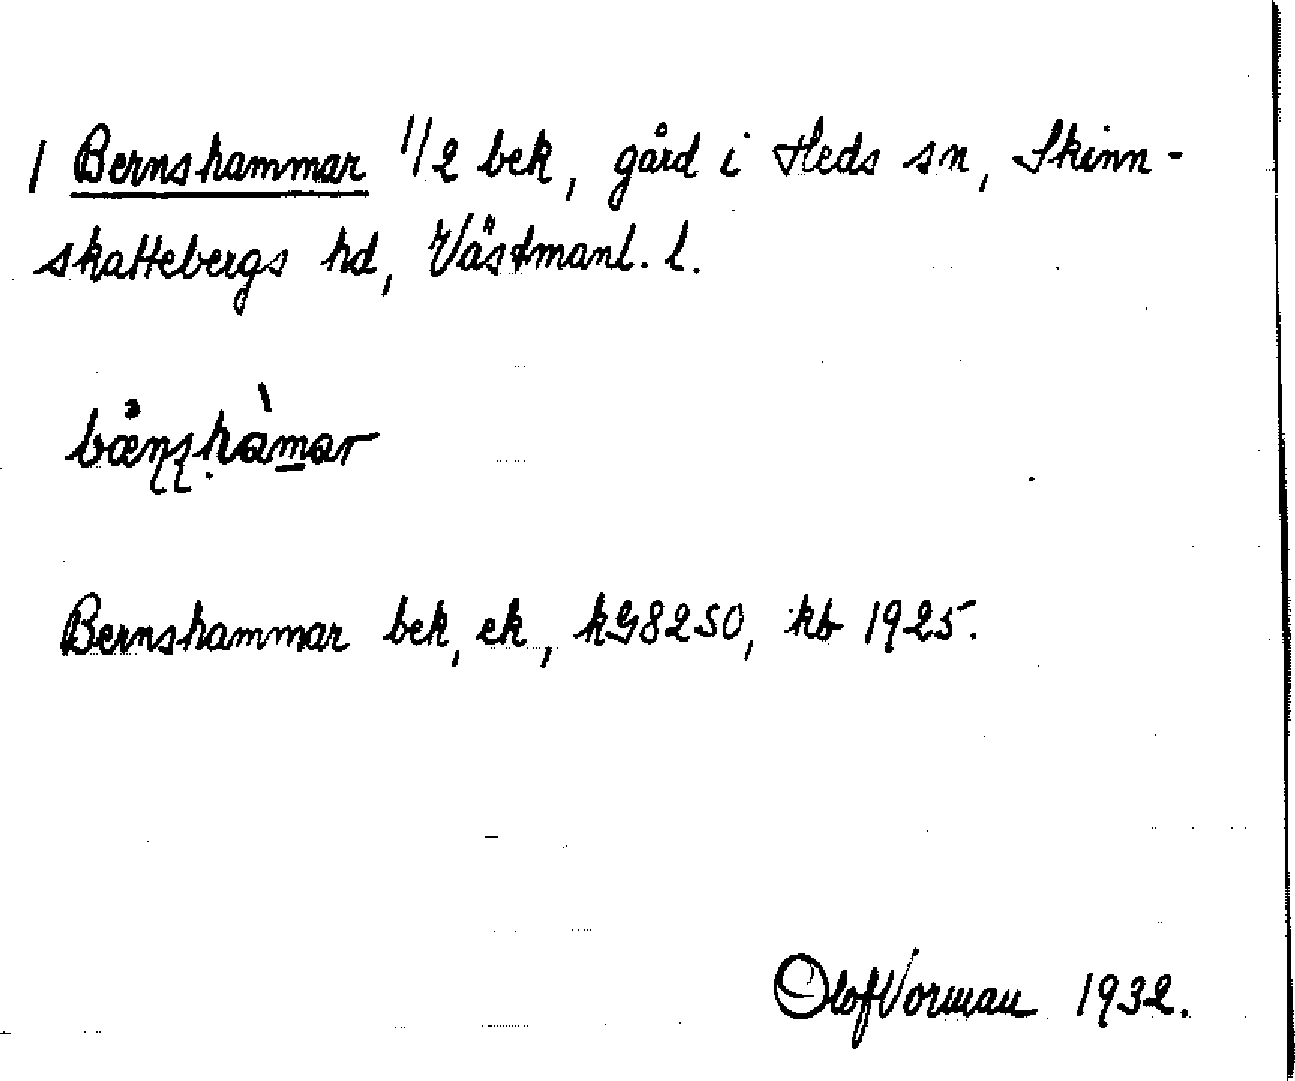 / Bernshammar 1/2 bek, gård i Heds sn, Skinn-
skattebergs hd, Västmanl. l.
Bernshammar bek, ek, kG8250, kb 1925.
Olof Vorman 1932.